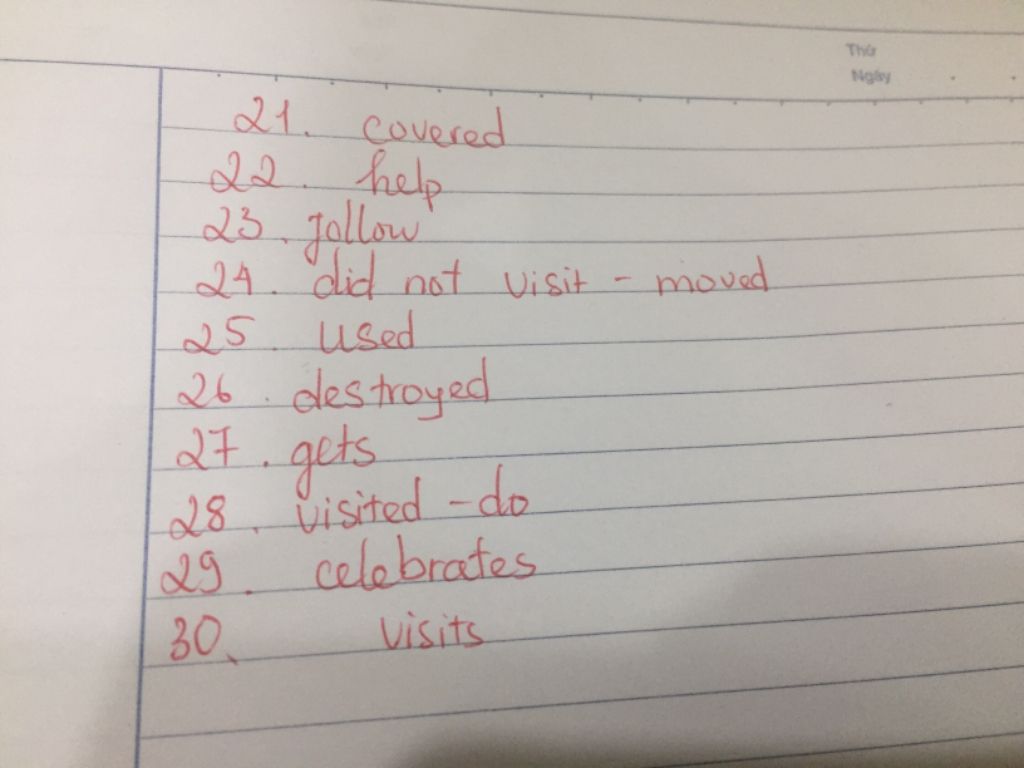 Thứ
Ngày
21. covered
22. help
23. follow
24. did not visit - moved
25. used
26. destroyed
27. gets
28. visited - do
29. celebrates
30. visits